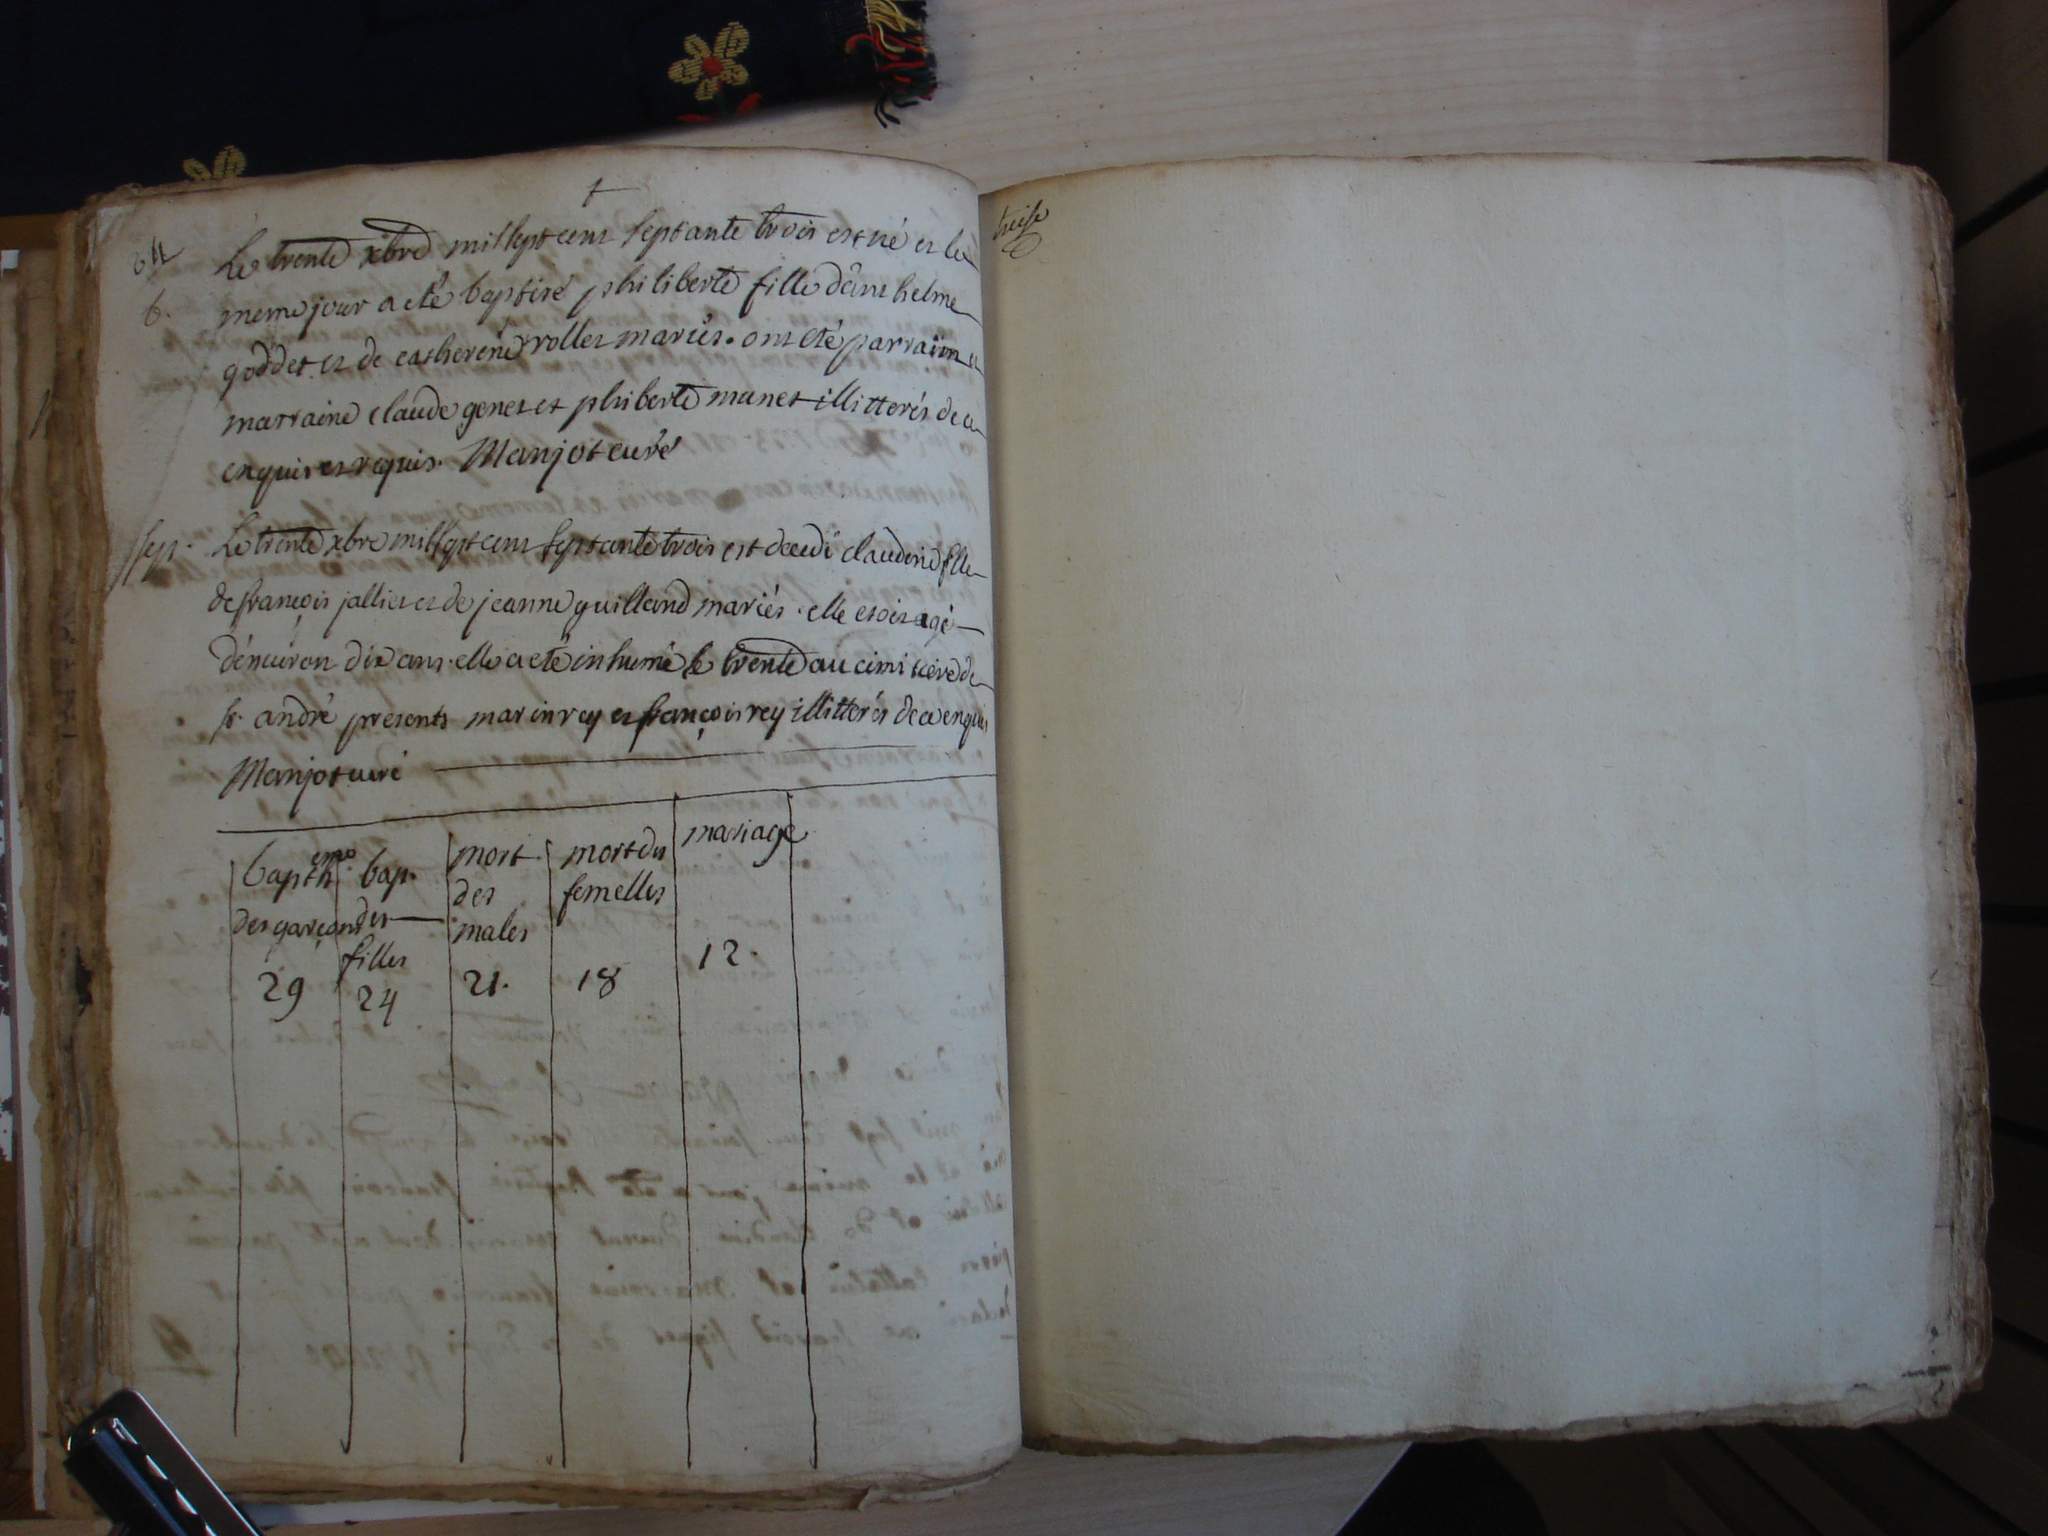 64
b.
Le trente xbre mil sept cent septante trois est né et le
meme jour a eté baptisé philiberte fille d'anthelme
goddet et de catherene rollet mariés. ont eté parrain et
marraine claude genet et phiberte munet illitterés de ce
enquis et requis. Manjot curé
sep.
Le trente xbre mil sept cent septante trois est decedé claudine fille
de françois jallier et de jeanne guilland mariés. elle etoit agé
d'environ dix ans. elle a eté inhumé le trente au cimitière de
st. andré presents marin rey et françois rey illitterés de ce enquis
Manjot curé
baptheme des garçons
bap. des filles
mort des males
mort des femelles
mariage
29
24
21.
18
12.
treise